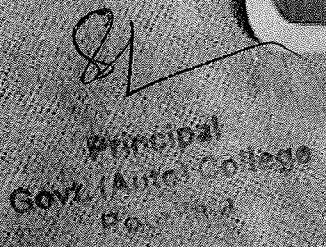 Principal
Govt. (Auto) College